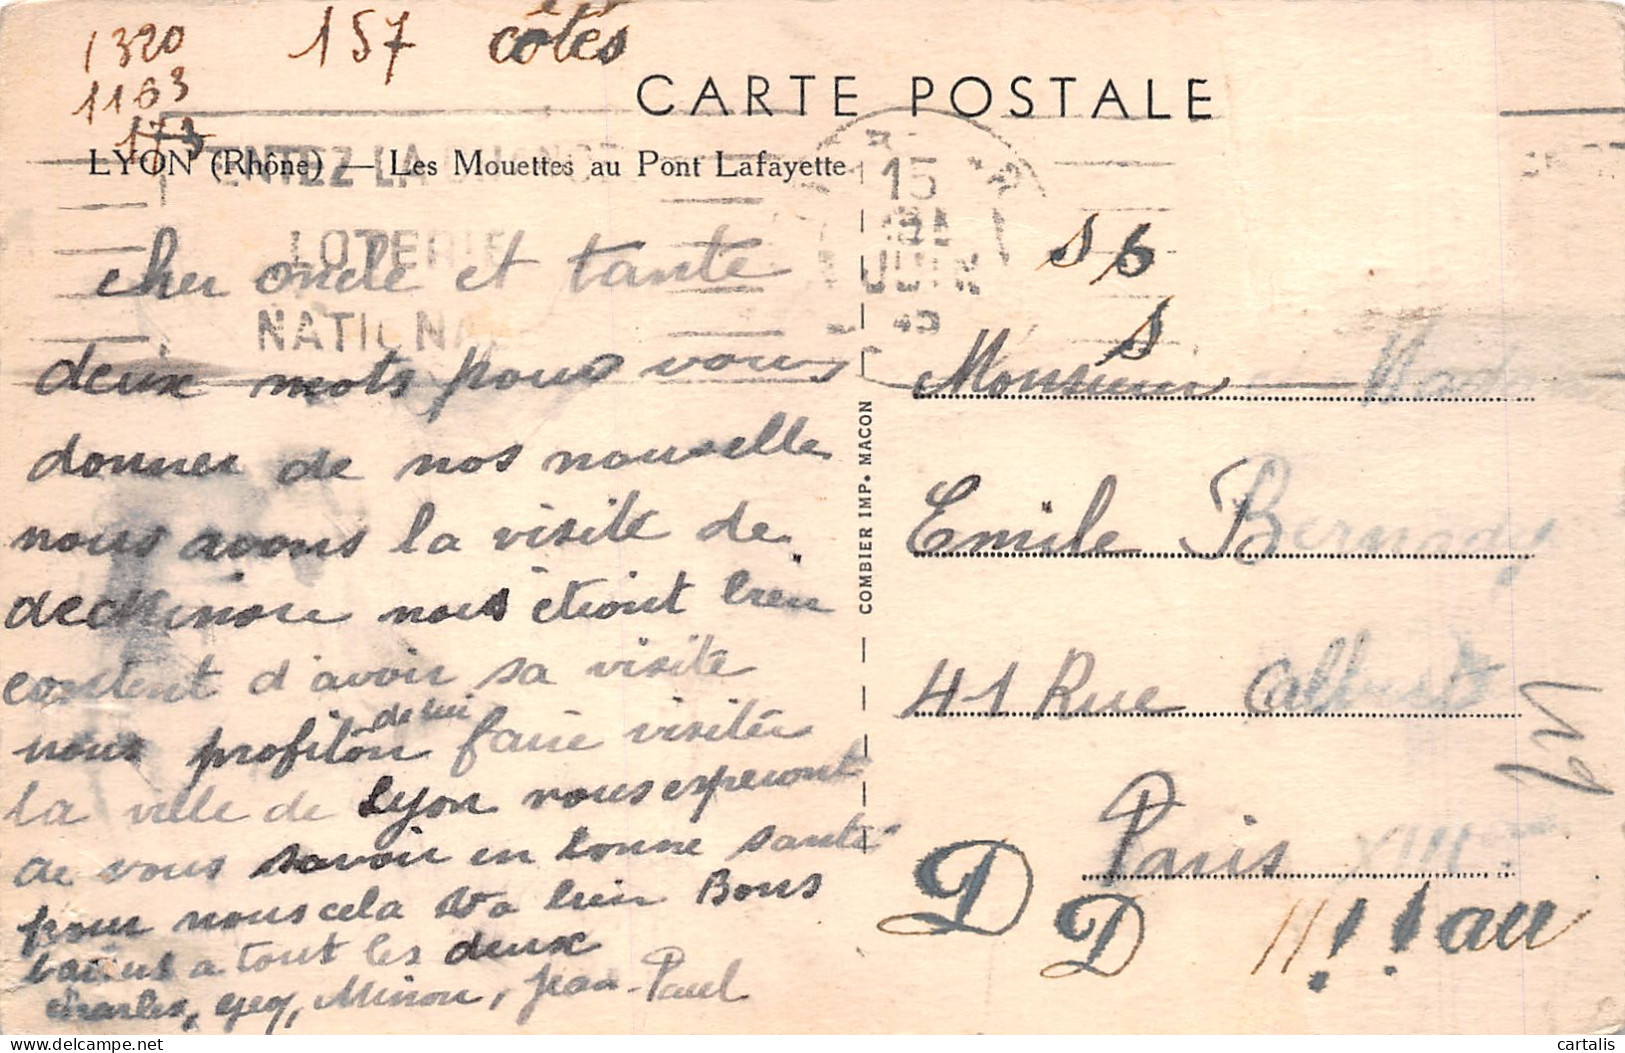 1320
157 côtés
1163
173
CARTE POSTALE
LYON (Rhône) — Les Mouettes au Pont Lafayette
TENTEZ LA CHANCE
LOTERIE
NATIONALE
15
JUIN
cher oncle et tante
deux mots pour vous
donner de nos nouvelle
nous avons la visite de
nous étiont bien
content d'avoir sa visite
nous profiton de lui faire visiter
la ville de Lyon nous esperont
de vous savoir en bonne santé
pour nous cela va bien Bons
baisers a tout les deux
Charles, Minou, Jean-Paul
COMBIER IMP. MACON
S 6
S
Monsieur et Madame
Emile
41 Rue
Paris XIII
D
D
au
cartalis
delcampe.net